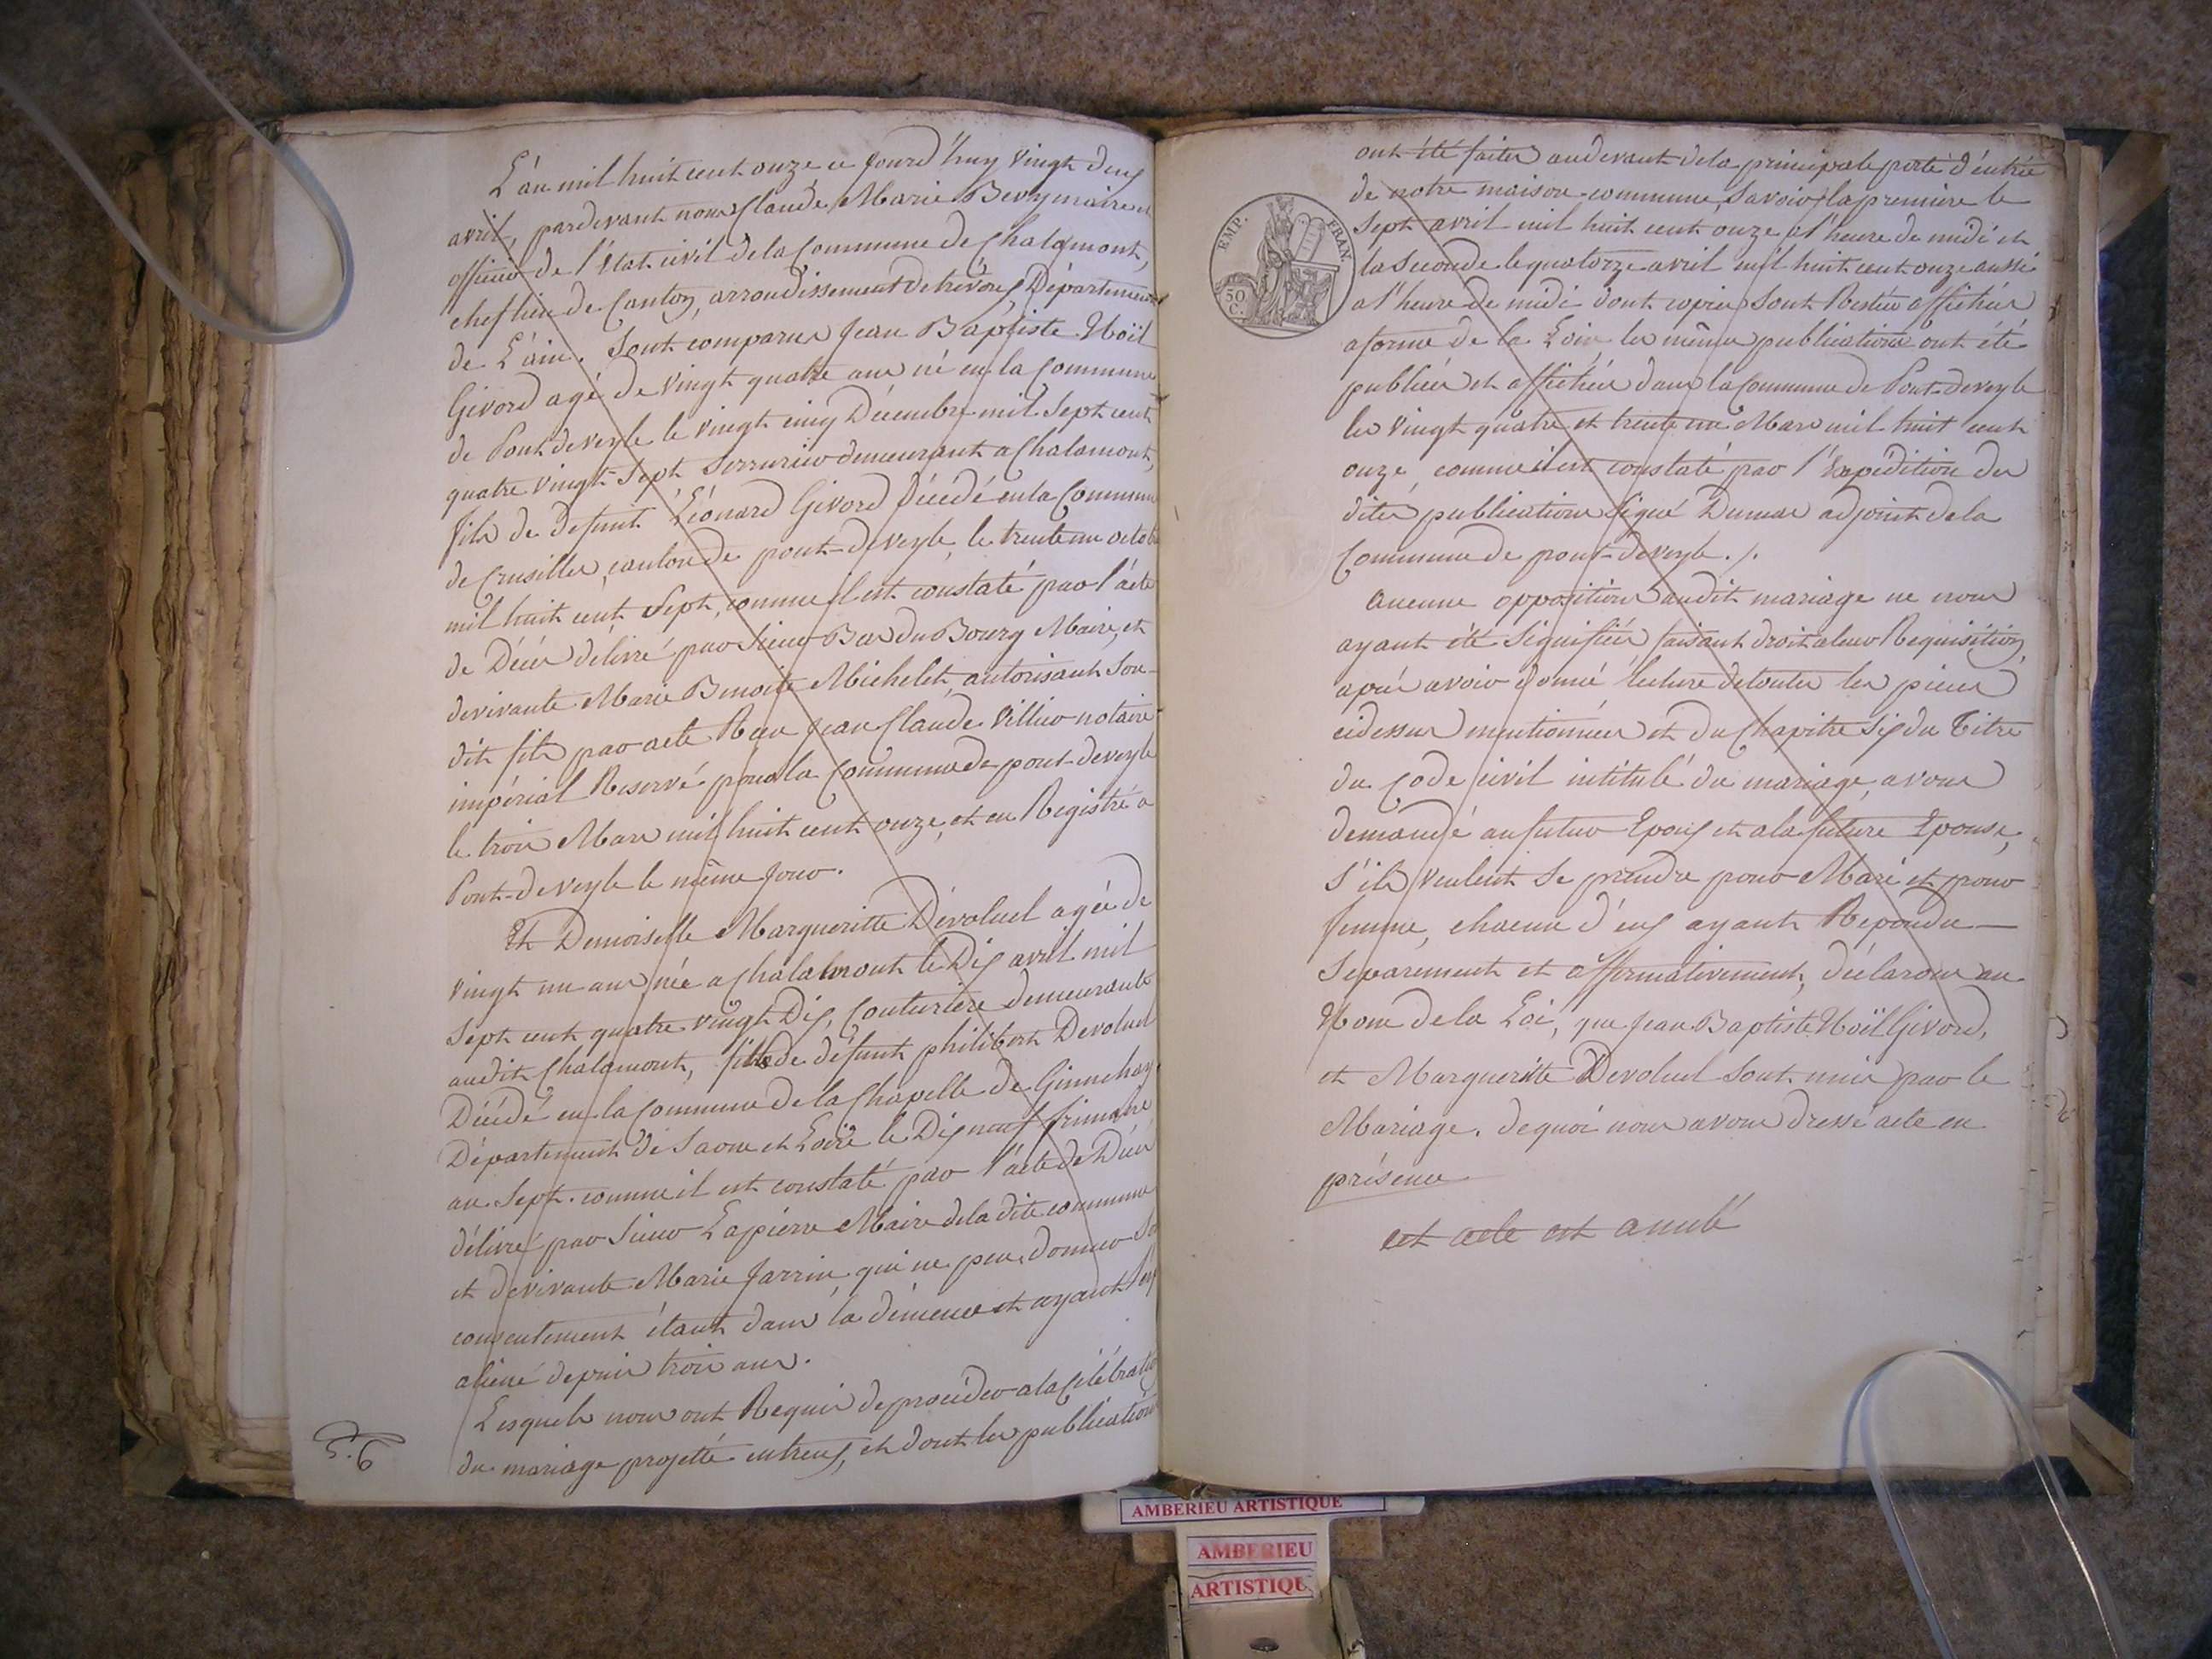 L'án mil huit cent onze ce jourd'huy vingt deux
avril, pardevant nous Claude Marie Bevy maire et
officier de l'état civil de la Commune de Chalamont,
chef lieu de Canton, arrondissement de trévoux, Département
de L'ain. Sont comparus Jean Baptiste Noël
Givord agé de vingt quatre ans né en la Commune
de Pontdeveyle le vingt cinq Décembre mil Sept cent
quatre vingt Sept Serrurier demeurant a Chalamont,
fils de defunt Léonard Givord Décédé en la Commune
de Crusilles, canton de pont-deveyle, le trente un octob
mil huit cent Sept, comme il est constaté par l'acte
de Décès délivré par Sieur Bas du Bourg Maire, et
devivante Marie Benoite Michelet, autorisant Son-
dit fils par acte Recu Jean Claude Villier notaire
impérial Reservé pour la Commune de pont-deveyle
le trois Mars mil huit cent onze, et en Registré a
Pont-deveyle le même jour.
Et Demoiselle Margueritte Dévoluel agée de
vingt un ans née a Chalamont le Dix avril mil
Sept cent quatre vingt Dix, Couturière demeurante
audit Chalamont, fille de défunt philibert Devoluel
Décédé en la Commune de la Chapelle de Guinchay
Département de Saone et Loire le Dix neuf frimaire
an Sept. comme il est constaté par l'acte de Décès
délivré par Sieur Lapierre Maire de la dite commune
et devivante Marie Jarrin qui ne peu donner So
consentement étant dans la démence et ayant l'esp
aliéné depuis trois ans.
Lesquels nous ont Requis de procéder a la Célébratio
du mariage projetté entreux, et dont les publications
ont été faites audevant de la principale porte d'entrée
de notre maison-commune, Savoir, la première le
Sept avril mil huit cent onze a l'heure de midi et
la Seconde le quatorze avril mil huit cent onze aussi
a l'heure de midi dont copies Sont Restées affichées
aforme de la Loix, les mêmes publications ont été
publiées et affichées dans la Commune de Pont-deveyle
les vingt quatre et trente un Mars mil huit cent
onze, comme il est constaté par l'Expédition des
dites publications Signé Dumas adjoint de la
Commune de pont-deveyle ./.
Aucune opposition audit mariage ne nous
ayant été Signifiée faisant droit aleur Requisition,
après avoir donné lecture detoutes les pieces
cidessus mentionnées et du Chapitre Six du Titre
du Code civil intitulé du mariage, avons
demandé au futur Epoux et a la future Epouse,
S'ils veulent Se prendre pour Mari et pour
femme, chacun d'eux ayant Repondu —
Separement et affirmativement, déclarons au
Nom de la Loi, que Jean Baptiste Noël Givord,
et Margueritte Devoluel Sont unis par le
Mariage. dequoi nous avons dressé acte en
présence
cet acte est anulé
EMP. FRAN.
50 C.
AMBERIEU ARTISTIQUE
AMBERIEU
ARTISTIQU